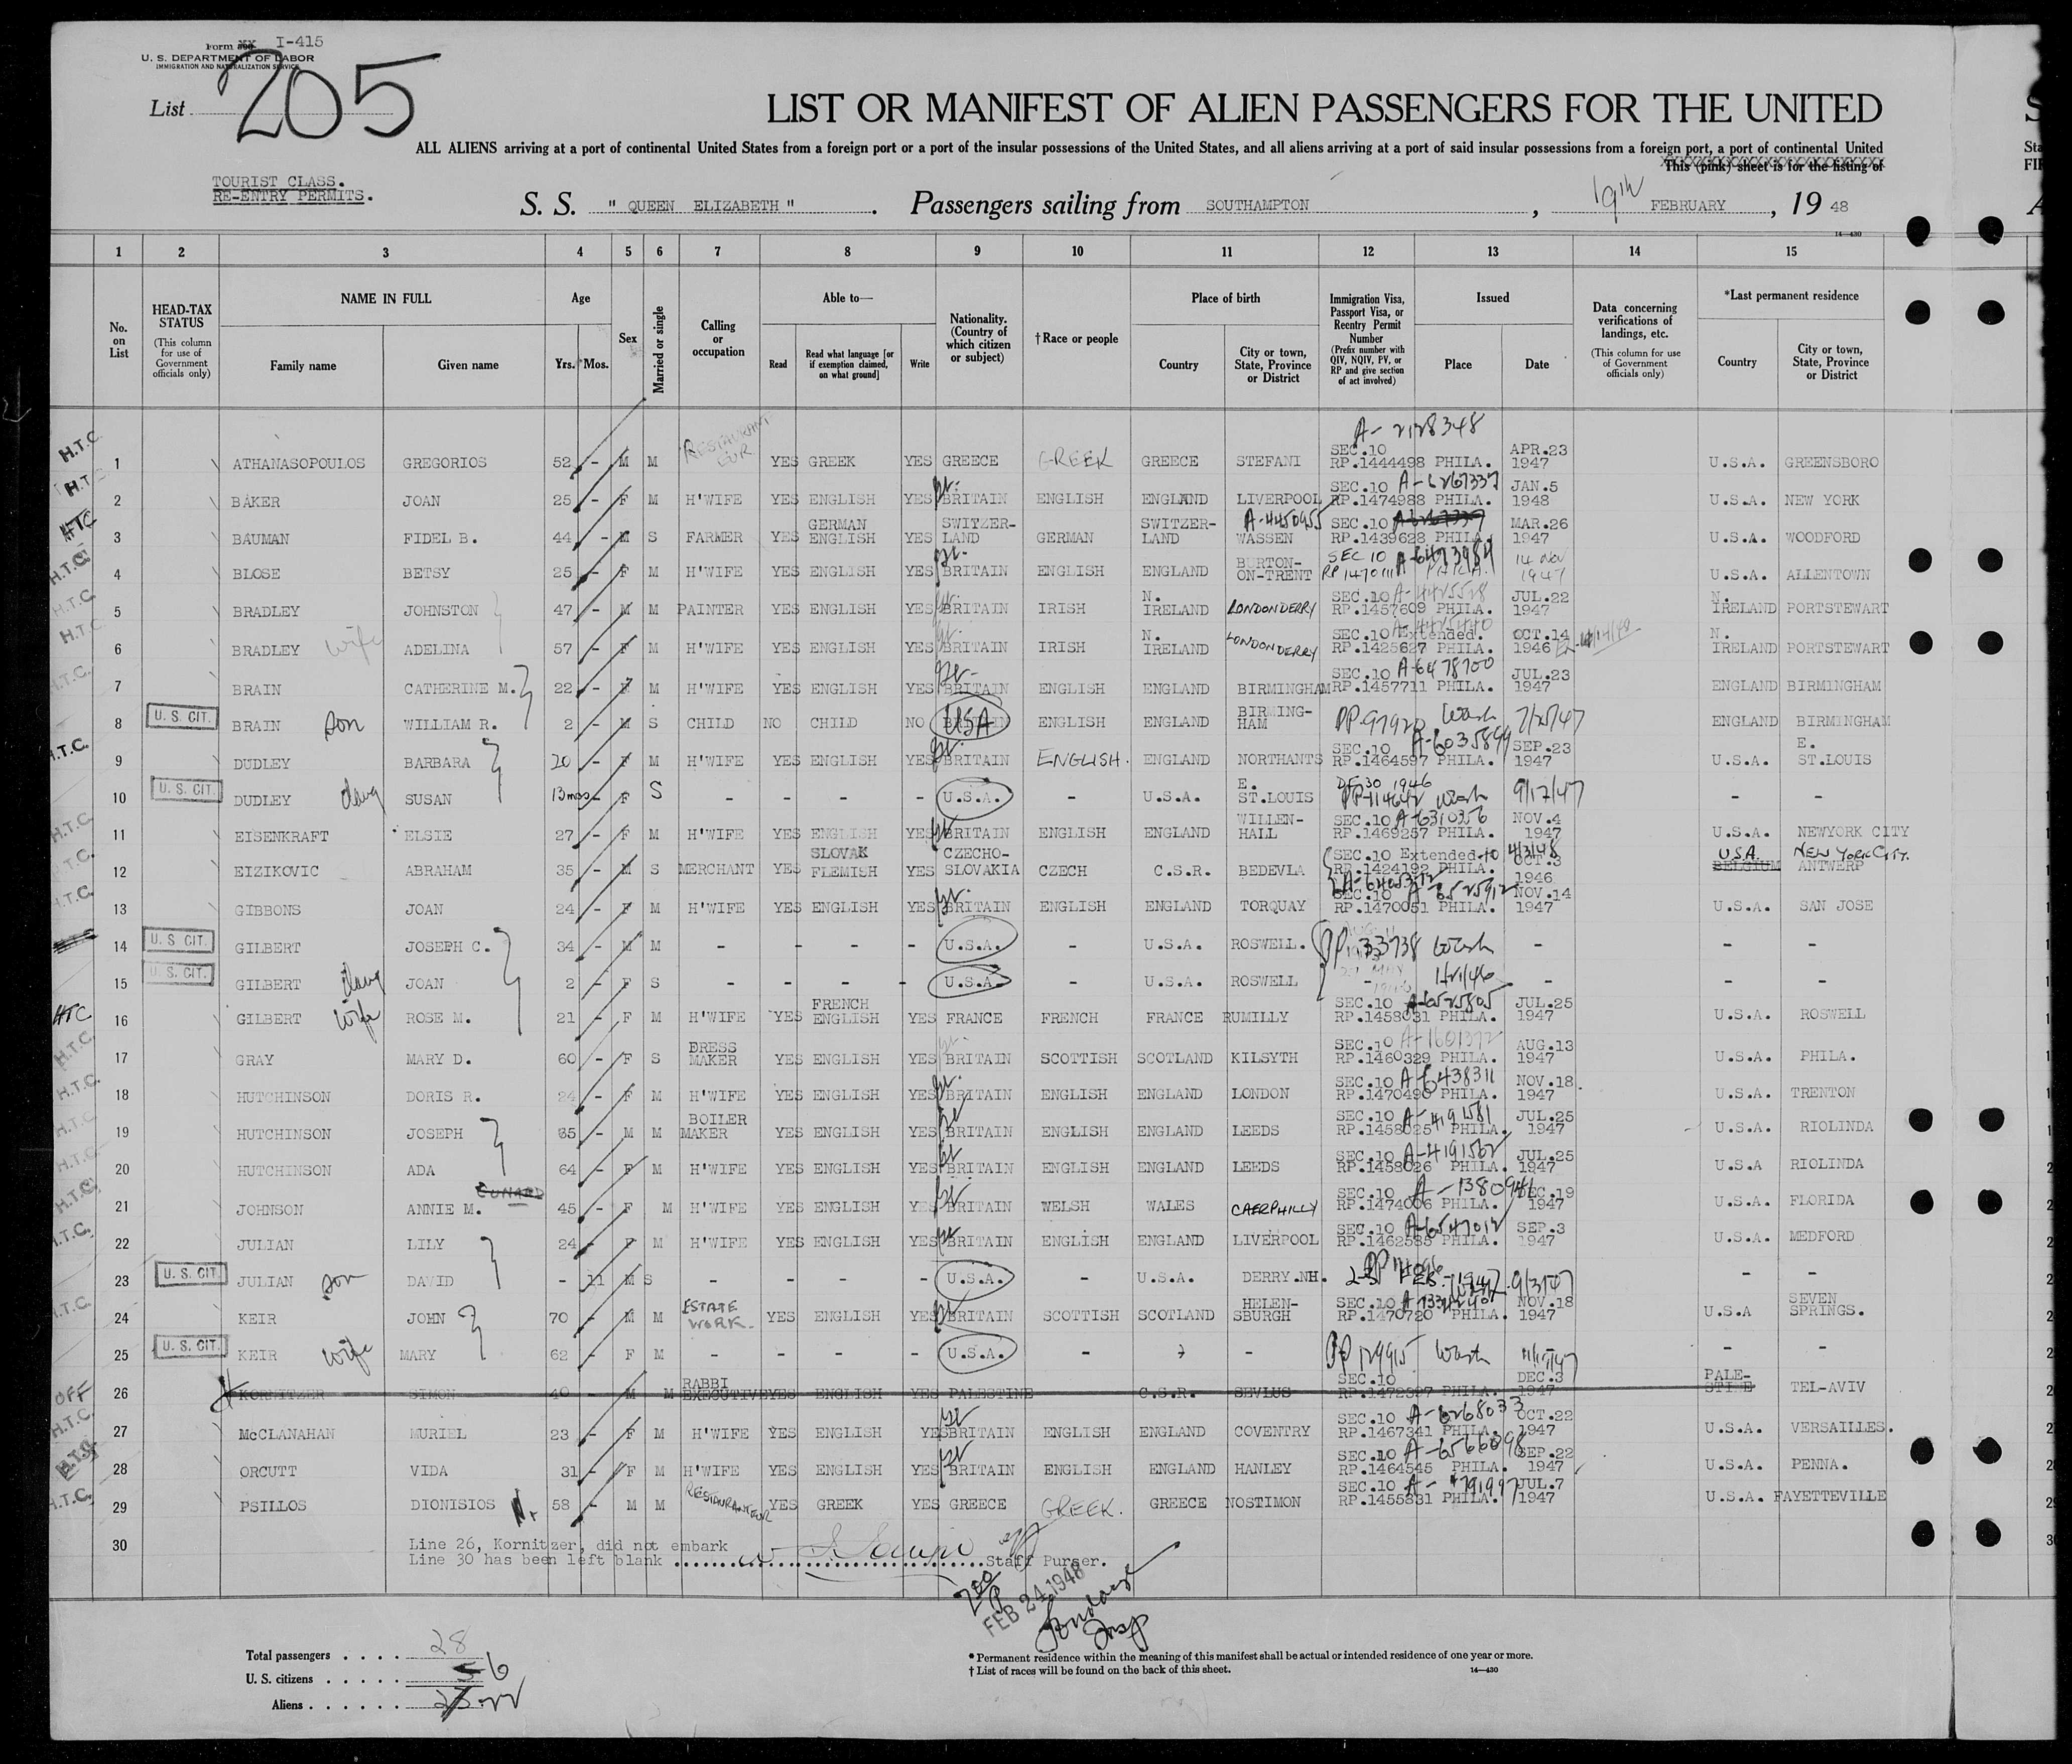 Form I-415
U. S. DEPARTMENT OF LABOR
IMMIGRATION AND NATURALIZATION SERVICE
List 205
LIST OR MANIFEST OF ALIEN PASSENGERS FOR THE UNITED
ALL ALIENS arriving at a port of continental United States from a foreign port or a port of the insular possessions of the United States, and all aliens arriving at a port of said insular possessions from a foreign port, a port of continental United
This (pink) sheet is for the listing of
TOURIST CLASS.
RE-ENTRY PERMITS.
S. S. "QUEEN ELIZABETH". Passengers sailing from SOUTHAMPTON, 19th FEBRUARY, 19 48
14—430
1 2 3 4 5 6 7 8 9 10 11 12 13 14 15
No. on List
HEAD-TAX STATUS (This column for use of Government officials only)
NAME IN FULL Family name Given name
Age Yrs. Mos.
Sex
Married or single
Calling or occupation
Able to— Read Read what language [or if exemption claimed, on what ground] Write
Nationality. (Country of which citizen or subject)
†Race or people
Place of birth Country City or town, State, Province or District
Immigration Visa, Passport Visa, or Reentry Permit Number (Prefix number with QIV, NQIV, PV, or RP and give section of act involved)
Issued Place Date
Data concerning verifications of landings, etc. (This column for use of Government officials only)
*Last permanent residence Country City or town, State, Province or District
H.T.C. 1 ATHANASOPOULOS GREGORIOS 52 - M M RESTAURANTEUR YES GREEK YES GREECE GREEK GREECE STEFANI A-2128348 SEC.10 RP.1444498 PHILA. APR.23 1947 U.S.A. GREENSBORO
H.T.C. 2 BAKER JOAN 25 - F M H'WIFE YES ENGLISH YES gr. BRITAIN ENGLISH ENGLAND LIVERPOOL SEC.10 A-6267337 RP.1474988 PHILA. JAN.5 1948 U.S.A. NEW YORK
HTC 3 BAUMAN FIDEL B. 44 - M S FARMER YES GERMAN ENGLISH YES SWITZER-LAND GERMAN SWITZER-LAND WASSEN A-4450955 SEC.10 RP.1439628 PHILA. MAR.26 1947 U.S.A. WOODFORD
H.T.C. 4 BLOSE BETSY 25 - F M H'WIFE YES ENGLISH YES gr. BRITAIN ENGLISH ENGLAND BURTON-ON-TRENT SEC 10 A-6473984 RP 1470111 PHILA. 14 Nov 1947 U.S.A. ALLENTOWN
H.T.C. 5 BRADLEY JOHNSTON 47 - M M PAINTER YES ENGLISH YES gr. BRITAIN IRISH N. IRELAND LONDONDERRY SEC.10 A-4425528 RP.1457609 PHILA. JUL.22 1947 N. IRELAND PORTSTEWART
H.T.C. 6 BRADLEY wife ADELINA 57 - F M H'WIFE YES ENGLISH YES gr. BRITAIN IRISH N. IRELAND LONDONDERRY SEC.10 Extended. RP.1425627 PHILA. OCT.14 1946 N. IRELAND PORTSTEWART
H.T.C. 7 BRAIN CATHERINE M. 22 - F M H'WIFE YES ENGLISH YES gr. BRITAIN ENGLISH ENGLAND BIRMINGHAM SEC.10 A-6478700 RP.1457711 PHILA. JUL.23 1947 ENGLAND BIRMINGHAM
U. S. CIT. 8 BRAIN son WILLIAM R. 2 - M S CHILD NO CHILD NO BRITAIN USA ENGLISH ENGLAND BIRMING-HAM PP-97920 Wash 7/25/47 ENGLAND BIRMINGHAM
H.T.C. 9 DUDLEY BARBARA 20 - F M H'WIFE YES ENGLISH YES gr. BRITAIN ENGLISH. ENGLAND NORTHANTS SEC.10 A-6035899 RP.1464597 PHILA. SEP.23 1947 U.S.A. E. ST.LOUIS
U. S. CIT. 10 DUDLEY daug SUSAN 13 mos - F S - - - - U.S.A. - U.S.A. E. ST.LOUIS 1946 PP-114642 Wash 9/17/47 - -
H.T.C. 11 EISENKRAFT ELSIE 27 - F M H'WIFE YES ENGLISH YES gr. BRITAIN ENGLISH ENGLAND WILLEN-HALL SEC.10 A-6310356 RP.1469257 PHILA. NOV.4 1947 U.S.A. NEWYORK CITY
H.T.C. 12 EIZIKOVIC ABRAHAM 35 - M S MERCHANT YES SLOVAK FLEMISH YES CZECHO-SLOVAKIA CZECH C.S.R. BEDEVLA SEC.10 Extended to 4/3/48 RP.1424192 PHILA. OCT.3 1946 BELGIUM ANTWERP U.S.A. NEW YORK CITY.
H.T.C. 13 GIBBONS JOAN 24 - F M H'WIFE YES ENGLISH YES gr. BRITAIN ENGLISH ENGLAND TORQUAY SEC.10 A-6525912 RP.1470051 PHILA. NOV.14 1947 U.S.A. SAN JOSE
U. S. CIT. 14 GILBERT JOSEPH C. 34 - M M - - - - U.S.A. - U.S.A. ROSWELL. PP 133738 Wash - - -
U. S. CIT. 15 GILBERT daug JOAN 2 - F S - - - - U.S.A. - U.S.A. ROSWELL - - - -
HTC 16 GILBERT wife ROSE M. 21 - F M H'WIFE YES FRENCH ENGLISH YES FRANCE FRENCH FRANCE RUMILLY SEC.10 A-6525805 RP.1458031 PHILA. JUL.25 1947 U.S.A. ROSWELL
H.T.C. 17 GRAY MARY D. 60 - F S DRESS MAKER YES ENGLISH YES gr. BRITAIN SCOTTISH SCOTLAND KILSYTH SEC.10 A-1601372 RP.1460329 PHILA. AUG.13 1947 U.S.A. PHILA.
H.T.C. 18 HUTCHINSON DORIS R. 24 - F M H'WIFE YES ENGLISH YES gr. BRITAIN ENGLISH ENGLAND LONDON SEC.10 A-6438311 RP.1470490 PHILA. NOV.18 1947 U.S.A. TRENTON
H.T.C. 19 HUTCHINSON JOSEPH 65 - M M BOILER MAKER YES ENGLISH YES gr BRITAIN ENGLISH ENGLAND LEEDS SEC.10 A-4191581 RP.1458025 PHILA. JUL.25 1947 U.S.A. RIOLINDA
H.T.C. 20 HUTCHINSON ADA 64 - F M H'WIFE YES ENGLISH YES gr BRITAIN ENGLISH ENGLAND LEEDS SEC.10 A-4191562 RP.1458026 PHILA. JUL.25 1947 U.S.A RIOLINDA
H.T.C. 21 JOHNSON ANNIE M. 45 - F M H'WIFE YES ENGLISH YES gr BRITAIN WELSH WALES CAERPHILLY SEC.10 A-1380941 RP.1474006 PHILA. DEC.19 1947 U.S.A. FLORIDA
H.T.C. 22 JULIAN LILY 24 - F M H'WIFE YES ENGLISH YES gr BRITAIN ENGLISH ENGLAND LIVERPOOL SEC.10 A-6547012 RP.1462585 PHILA. SEP.3 1947 U.S.A. MEDFORD
U. S. CIT. 23 JULIAN son DAVID - 11 M S - - - - U.S.A. - U.S.A. DERRY.NH. 9/3/47 - -
H.T.C. 24 KEIR JOHN 70 - M M ESTATE WORK. YES ENGLISH YES gr BRITAIN SCOTTISH SCOTLAND HELEN-SBURGH SEC.10 RP.1470720 PHILA. NOV.18 1947 U.S.A SEVEN SPRINGS.
U. S. CIT. 25 KEIR wife MARY 62 - F M - - - - U.S.A. - - PP 129915 Wash - -
OFF 26 KORNITZER SIMON 40 - M M RABBI EXECUTIVE YES ENGLISH YES PALESTINE C.S.R. SEVLUS SEC.10 RP.1472327 PHILA. DEC.3 1947 PALE-STINE TEL-AVIV
H.T.C. 27 McCLANAHAN MURIEL 23 - F M H'WIFE YES ENGLISH YES gr BRITAIN ENGLISH ENGLAND COVENTRY SEC.10 A-6268033 RP.1467341 PHILA. OCT.22 1947 U.S.A. VERSAILLES.
H.T.C. 28 ORCUTT VIDA 31 - F M H'WIFE YES ENGLISH YES gr BRITAIN ENGLISH ENGLAND HANLEY SEC.10 A-6566098 RP.1464545 PHILA. SEP.22 1947 U.S.A. PENNA.
H.T.C. 29 PSILLOS DIONISIOS 58 - M M RESTAURANTEUR YES GREEK YES GREECE GREEK. GREECE NOSTIMON SEC.10 A-4791997 RP.1455831 PHILA. JUL.7 1947 U.S.A. FAYETTEVILLE
30 Line 26, Kornitzer, did not embark
Line 30 has been left blank Staff Purser.
FEB 24 1948
Insp
Total passengers . . . . 28
U. S. citizens . . . . . 6
Aliens . . . . . . 22
* Permanent residence within the meaning of this manifest shall be actual or intended residence of one year or more.
† List of races will be found on the back of this sheet.
14—430